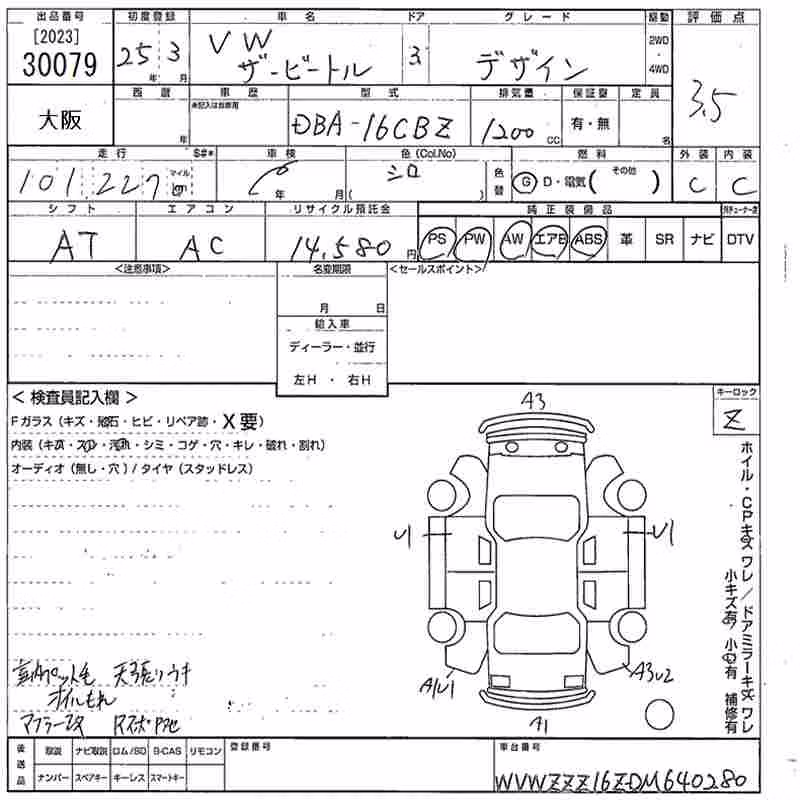 出品番号 初度登録 車名 ドア グレード 駆動 評価点
[2023]
30079
25年 3月
VW
ザ・ビートル
3
デザイン
2WD
4WD
3.5
大阪
西暦 車歴 型式 排気量 保証書 定員
年
DBA-16CBZ
1200 CC
有・無
名
走行 S#* 車検 色(Col.No) 燃料 外装 内装
101,227 マイル km
年 月(
シロ
)
色替
G D・電気( その他 )
C C
シフト エアコン リサイクル預託金 純正装備品
AT AC 14,580円
PS PW AW エアB ABS 革 SR ナビ DTV
<注意事項> 名変期限 <セールスポイント>
月 日
輸入車
ディーラー・並行
左H ・ 右H
< 検査員記入欄 >
Fガラス(キズ・飛石・ヒビ・リペア跡・X要)
内装(キズ・スレ・汚れ・シミ・コゲ・穴・キレ・破れ・割れ)
オーディオ(無し・穴)/タイヤ(スタッドレス)
A3
キーロック
Z
U1 U1
ホイル・CPキズ ワレ/ドアミラーキズ ワレ
小キズ有 小凹有 補修有
天張りウキ
オイルもれ
A1U1 A3U2
A1
後送品 取説 ナビ取説 ロム/SD B-CAS リモコン 登録番号 車台番号
ナンバー スペアキー キーレス スマートキー
WVWZZZ16ZDM640280